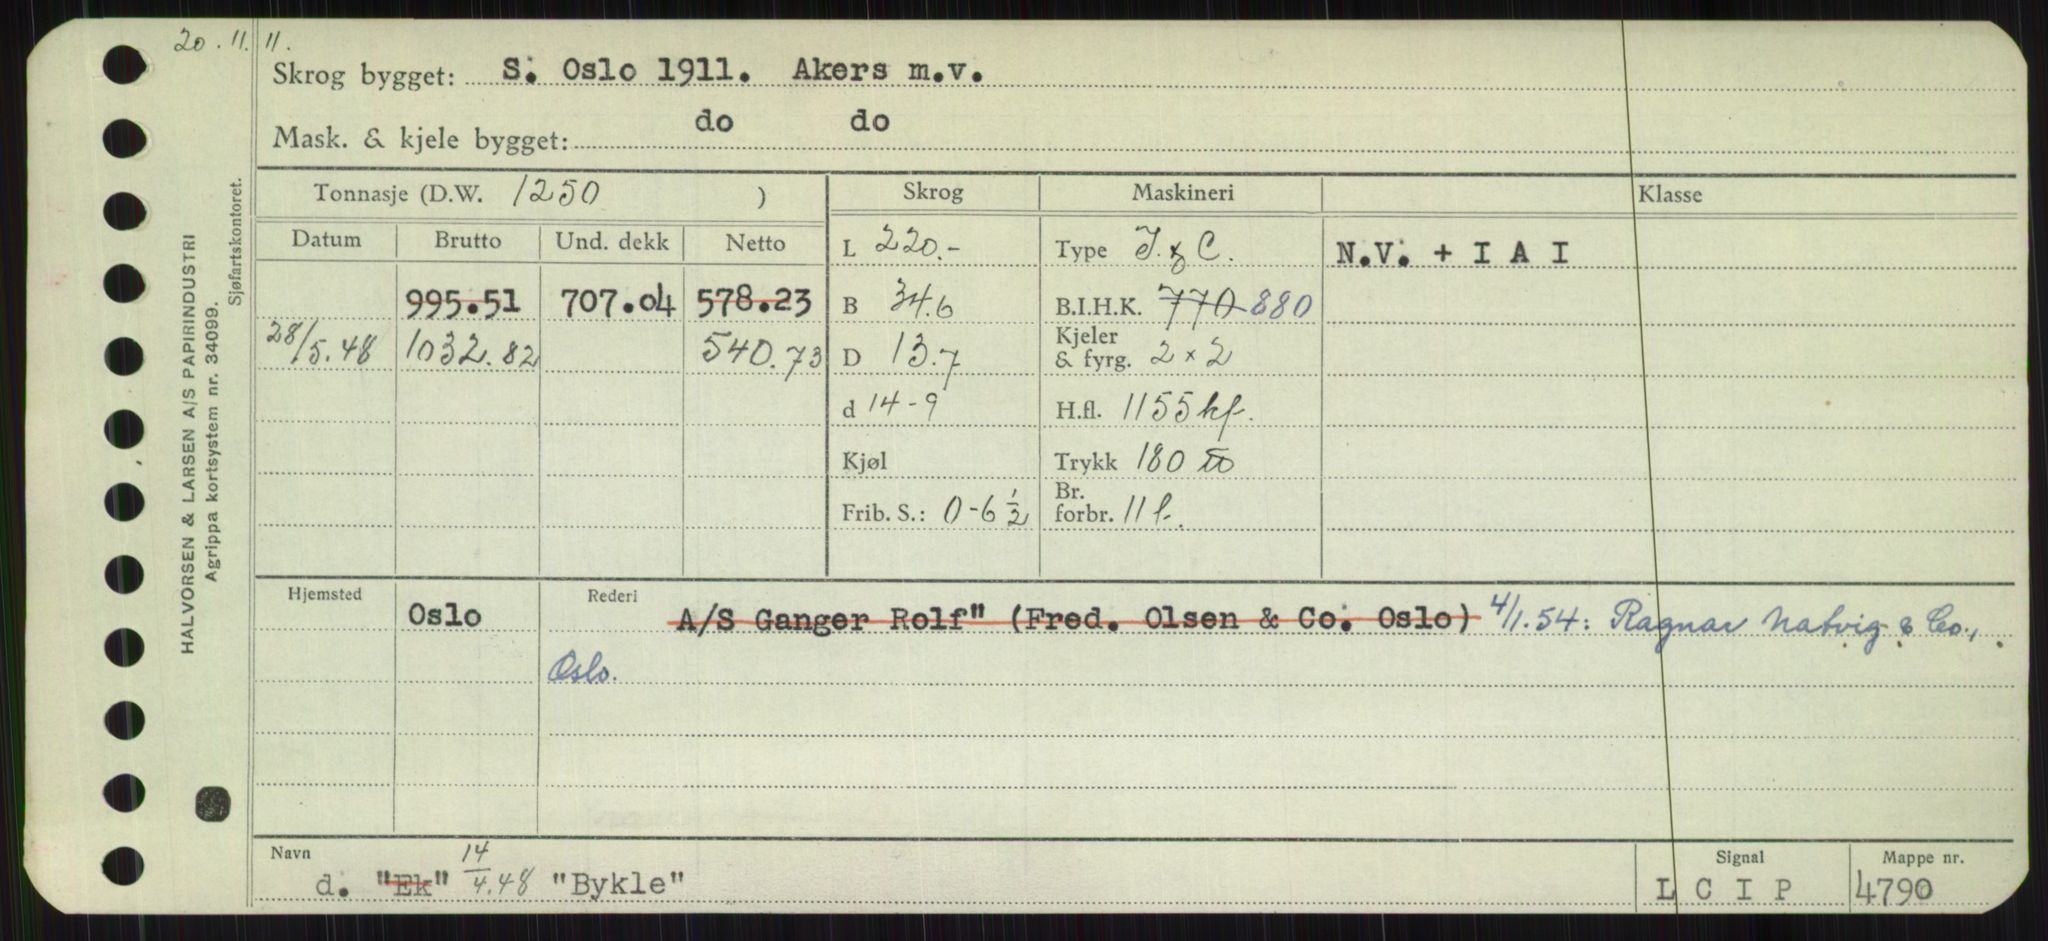 20.11.11.
Skrog bygget: S. Oslo 1911. Akers m.v.
Mask. & kjele bygget: do do
HALVORSEN & LARSEN A/S PAPIRINDUSTRI
Agrippa kortsystem nr. 34099.
Sjøfartskontoret.
Tonnasje (D.W. 1250 )
Skrog
Maskineri
Klasse
Datum Brutto Und. dekk Netto
L 220.-
Type T. & C.
N.V. + I A I
995.51 707.04 578.23
B 34.6
B.I.H.K. 770 880
28/5.48 1032.82 540.73
D 13.7
Kjeler
& fyrg. 2 x 2
d 14-9
H.fl. 1155 kf.
Kjøl
Trykk 180
Frib. S.: 0-6 1/2
Br.
forbr. 11 t.
Hjemsted Oslo
Rederi A/S Ganger Rolf" (Fred. Olsen & Co. Oslo) 4/1.54: Ragnar Natvig & Co.,
Oslo.
Navn
d. "Ek" 14/4.48 "Bykle"
Signal
L C I P
Mappe nr.
4790